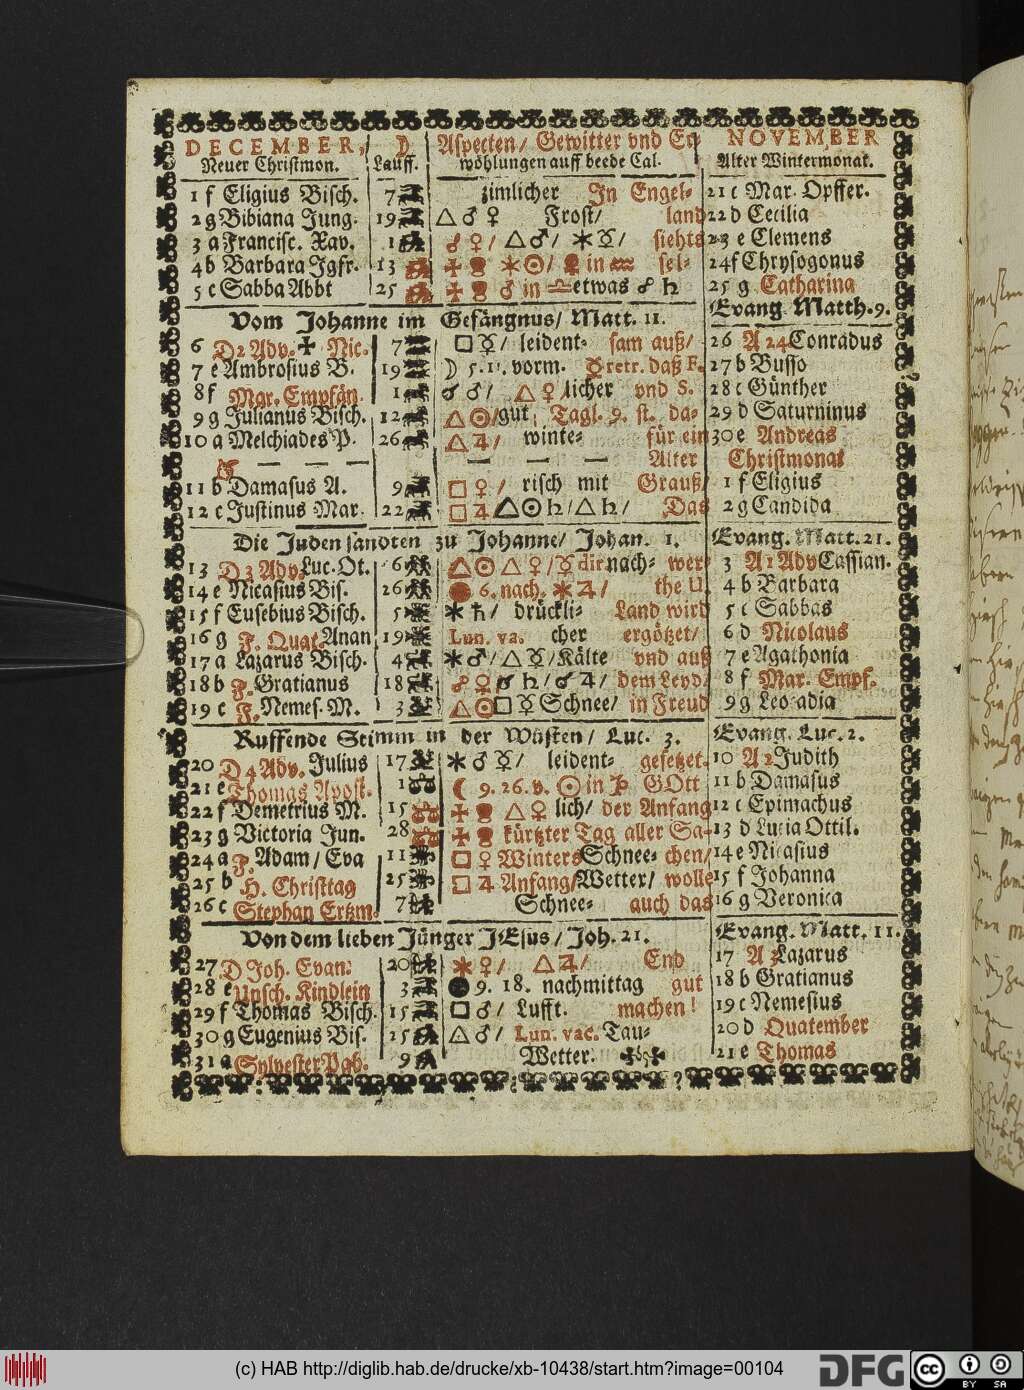 DECEMBER, ☽ Aspecten/ Gewitter vnd Er- NOVEMBER
Neuer Christmon. Lauff. wöhlungen auff beede Cal. Alter Wintermonat.
1 f Eligius Bisch. 7 zimlicher In Engel- 21 c Mar. Opffer.
2 g Bibiana Jung. 19 △ ♂ ♀ Frost/ land 22 d Cecilia
3 a Francisc. Xav. 1 ☍ ♀/ △ ♂/ ⚹ ☿/ siehts 23 e Clemens
4 b Barbara Jgfr. 13 ⚹ ☉/ in ♒ sel- 24 f Chrysogonus
5 c Sabba Abbt 25 ♂ in ♎ etwas ☍ ♄ 25 g Catharina
Vom Johanne im Gefängnus/ Matt. 11. Evang. Matth. 9.
6 D 2 Adv. ✠ Nic. 7 □ ☿/ leident- sam auß/ 26 A 24 Conradus
7 e Ambrosius B. 19 ☽ 5. 11. vorm. ☿ retr. daß F. 27 b Busso
8 f Mar. Empfän. 1 ☌ ♂/ △ ♀ licher vnd S. 28 c Günther
9 g Julianus Bisch. 12 △ ☉/ gut Tagl. 9. st. da- 29 d Saturninus
10 a Melchiades P. 26 △ ♃/ winte- für ein 30 e Andreas
— — — — — — — Alter Christmonat
11 b Damasus A. 9 □ ♀/ risch mit Grauß/ 1 f Eligius
12 c Justinus Mar. 22 □ ♃ △ ☉ ♄/ △ ♄/ Das 2 g Candida
Die Juden sandten zu Johanne/ Johan. 1. Evang. Matt. 21.
13 D 3 Adv. Luc. Ot. 6 △ ☉ △ ♀/ ☿ dir. nach- wer- 3 A 1 Adv Cassian.
14 e Nicasius Bis. 26 6. nach. ⚹ ♃/ the U. 4 b Barbara
15 f Eusebius Bisch. 5 ⚹ ♄/ drückli- Land wird 5 c Sabbas
16 g F. Quat. Anan 19 Lun. va. cher ergötzet/ 6 d Nicolaus
17 a Lazarus Bisch. 4 ⚹ ♂/ △ ☿/ Kälte vnd auß 7 e Agathonia
18 b F. Gratianus 18 ☍ ♀ ☌ ♄/ ☌ ♃/ dem Leyd/ 8 f Mar. Empf.
19 c F. Nemes. M. 3 △ ☉ □ ☿ Schnee/ in Freud 9 g Leocadia
Ruffende Stimm in der Wüsten/ Luc. 3. Evang. Luc. 2.
20 D 4 Adv. Julius 17 ⚹ ♂ ☿/ leident- gesetzet. 10 A 2 Judith
21 e Thomas Apost. 1 ☾ 9. 26. v. ☉ in ♑ GOtt 11 b Damasus
22 f Demetrius M. 15 △ ♀ lich/ der Anfang 12 c Epimachus
23 g Victoria Jun. 28 kürtzter Tag aller Sa- 13 d Lucia Ottil.
24 a F. Adam/ Eva 11 □ ♀ Winters Schnee- chen/ 14 e Nicasius
25 b H. Christtag 25 □ ♃ Anfang/ Wetter/ wolle 15 f Johanna
26 c Stephan Ertzm. 7 Schnee- auch das 16 g Veronica
Von dem lieben Jünger JEsus/ Joh. 21. Evang. Matt. 11.
27 D Joh. Evan. 20 ⚹ ♀/ △ ♃/ End 17 A 3 Lazarus
28 e Unsch. Kindlein 3 9. 18. nachmittag gut 18 b Gratianus
29 f Thomas Bisch. 15 □ ♂/ Lufft. machen! 19 c Nemesius
30 g Eugenius Bis. 25 △ ♂/ Lun. vac. Tau- 20 d Quatember
31 a Sylvester Pab. 9 Wetter. 21 e Thomas
(c) HAB http://diglib.hab.de/drucke/xb-10438/start.htm?image=00104 DFG cc BY SA